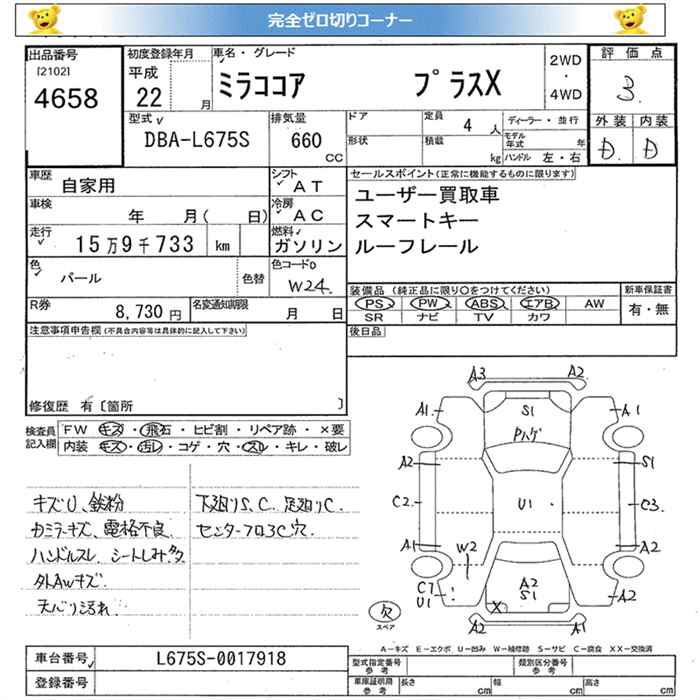 完全ゼロ切りコーナー
出品番号
[2102]
4658
初度登録年月
平成
22 月
車名・グレード
ミラココア プラスX
2WD
・
4WD
評価点
3
型式
DBA-L675S
排気量
660
CC
ドア
形状
定員
4 人
積載
kg
ディーラー・並行
モデル年式 年
ハンドル 左・右
外装 内装
D D
車歴
自家用
シフト
AT
車検
年 月( 日)
冷房
AC
走行
15万9千733 km
燃料
ガソリン
色
パール
色替
色コードNo
W24
R券
8,730 円
名変通知期限
月 日
セールスポイント(正常に機能するものに限ります)
ユーザー買取車
スマートキー
ルーフレール
装備品(純正品に限り○をつけてください)
PS PW ABS エアB AW
SR ナビ TV カワ
新車保証書
有・無
後日品
注意事項申告欄(不具合内容等は具体的に記入して下さい)
修復歴 有〔箇所 〕
検査員
記入欄
FW キズ・飛石・ヒビ割・リペア跡・×要
内装 キズ・汚レ・コゲ・穴・スレ・キレ・破レ
キズU、鉄粉
カミラーキズ、電格不良
ハンドルスレ シートしみ多
外AWキズ
天バリ汚れ
下廻りS、C 足廻りC
センターフロ3C穴
A3 A2
A1 S1 A1
Pハゲ
A2 S1
C2 U1 C3
A1 W2 A2
C1
U1
A2
S1
X
A2
A2 A1
欠
スペア
A-キズ E-エクボ U-凹み W-補修跡 S-サビ C-腐食 XX-交換済
車台番号
L675S-0017918
登録番号
型式指定番号
参考
類別区分番号
参考
車庫証明用
参考
長さ cm 幅 cm 高さ cm